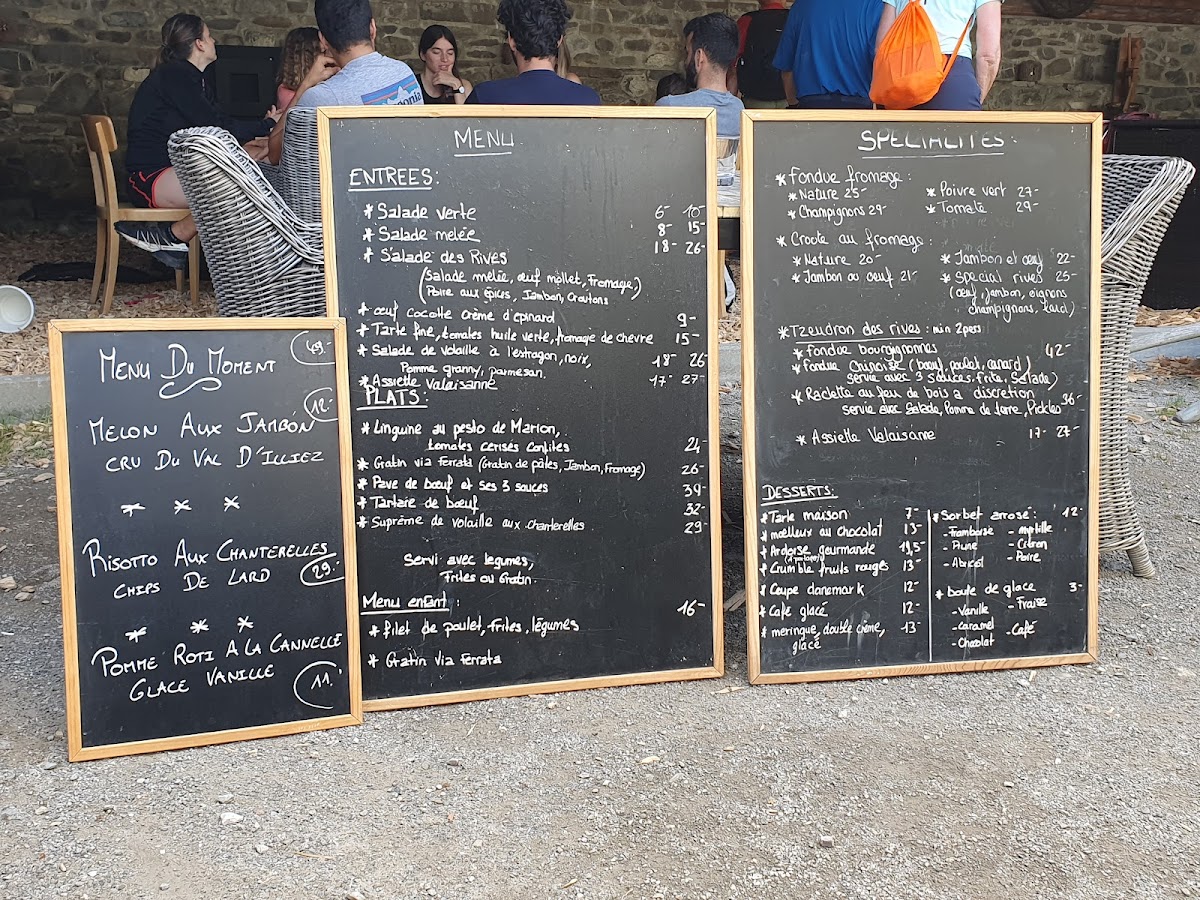 MENU DU MOMENT 49.-
MELON AUX JAMBON 12.-
CRU DU VAL D'ILLIEZ
* * *
RISOTTO AUX CHANTERELLES
CHIPS DE LARD 29.-
* * *
POMME ROTI A LA CANNELLE
GLACE VANILLE 11.-
MENU
ENTREES:
* Salade verte 6- 10-
* Salade melée 8- 15-
* Salade des RIVES 18- 26-
(Salade mélée, œuf mollet, Fromage,)
(Poire aux épices, Jambon, Croutons
* œuf cocotte crème d'épinard 9-
* Tarte fine, tomates huile verte, fromage de chevre 15-
* Salade de volaille à l'estragon, noix, 18- 26-
Pomme granny, parmesan.
* Assiette Valaisanne 17- 27-
PLATS:
* Linguine au pesto de Marion,
tomates cerises confites 24-
* Gratin via ferrata (Gratin de pâtes, Jambon, Fromage) 26-
* Pave de bœuf et ses 3 sauces 39-
* Tartare de bœuf 32-
* Suprême de volaille aux chanterelles 29-
Servi avec legumes,
Frites ou Gratin.
Menu enfant: 16-
* filet de poulet, frites, légumes
* Gratin via Ferrata
SPECIALITES:
* Fondue fromage:
* Nature 25- * Poivre vert 27-
* Champignons 29- * Tomate 29-
* Croote au fromage:
* Nature 20- * Jambon et œuf 22-
* Jambon ou oeuf 21- * Special rives 25-
(œuf, jambon, oignons
champignons, lard)
* TZEUDRON des rives: min 2pers
* fondue bourguignonnes 42-
* fondue Chinoise (bœuf, poulet, canard)
servie avec 3 sauces, frite, Salade)
* Raclette au feu de bois a discretion 36-
servie avec Salade, Pomme de terre, Pickles
* Assiette Valaisanne 17- 27-
DESSERTS:
* Tarte maison 7-
* moelleux au chocolat 13-
* Ardoise gourmande 19,5-
* Crumble fruits rouges 13-
* Coupe danemark 12-
* Café glacé 12-
* meringue, double crème, 13-
glacé
* Sorbet arrosé: 12-
- Framboise - myrtille
- Prune - Citron
- Abricot - Poire
* boule de glace 3-
- Vanille - Fraise
- Caramel - Café
- Chocolat